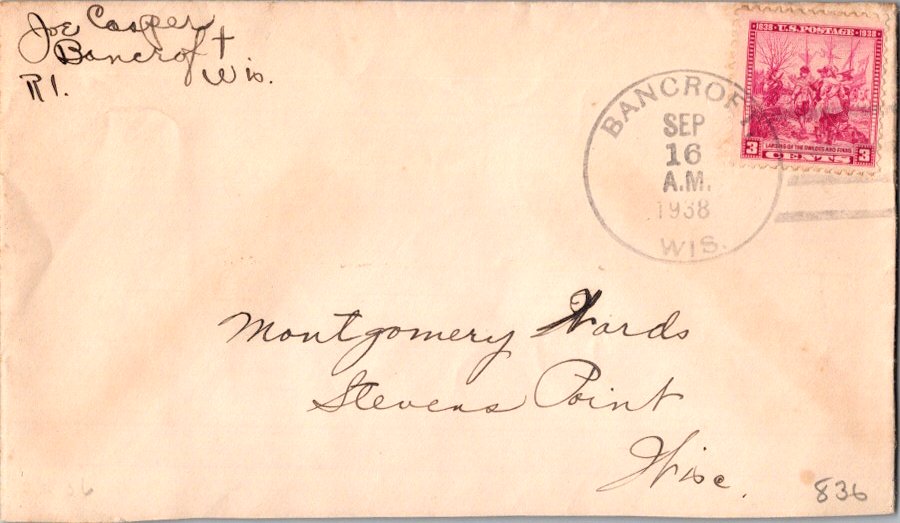 Joe Cooper
Bancroft
R1. Wis.
1638 U.S. POSTAGE 1938
LANDING OF THE SWEDES AND FINNS
3 CENTS 3
BANCROFT
SEP
16
A.M.
1938
WIS.
Montgomery Wards
Stevens Point
Wisc.
836